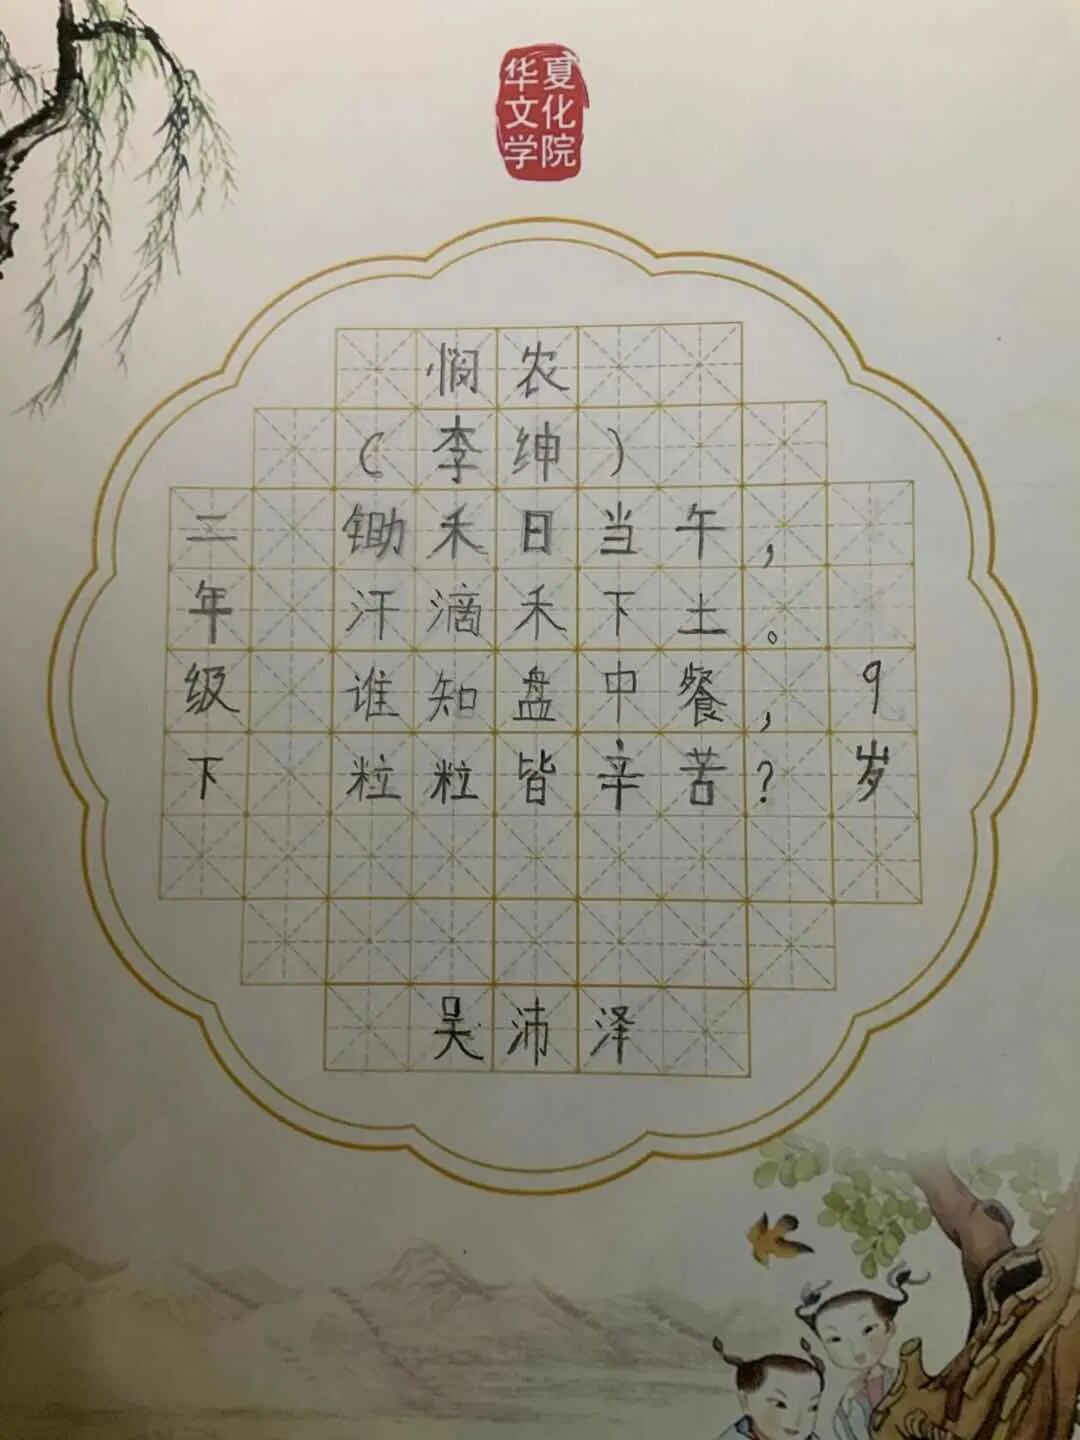 华夏
文化
学院
悯农
（李绅）
锄禾日当午，
汗滴禾下土。
谁知盘中餐，
粒粒皆辛苦？
二年级下
9岁
吴沛泽